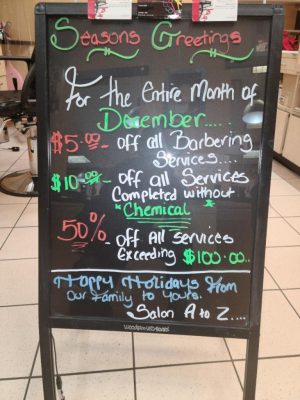 Seasons Greetings
For the Entire Month of
December.....
$5.00- off all Barbering
Services....
$10.00- off all Services
Completed without
"Chemical"
50%- off All services
Exceeding $100.00..
Happy Holidays From
Our Family to Yours.
Salon A to Z....